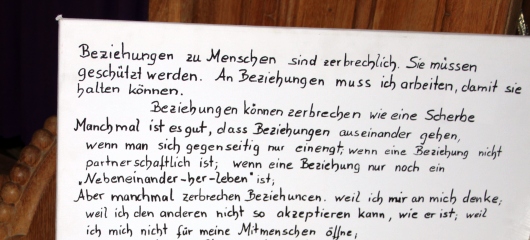 Beziehungen zu Menschen sind zerbrechlich. Sie müssen
geschützt werden. An Beziehungen muss ich arbeiten, damit sie
halten können.
Beziehungen können zerbrechen wie eine Scherbe
Manchmal ist es gut, dass Beziehungen auseinander gehen,
wenn man sich gegenseitig nur einengt; wenn eine Beziehung nicht
partnerschaftlich ist; wenn eine Beziehung nur noch ein
„Nebeneinander-her-leben" ist;
Aber manchmal zerbrechen Beziehungen. weil ich nur an mich denke;
weil ich den anderen nicht so akzeptieren kann, wie er ist; weil
ich mich nicht für meine Mitmenschen öffne,